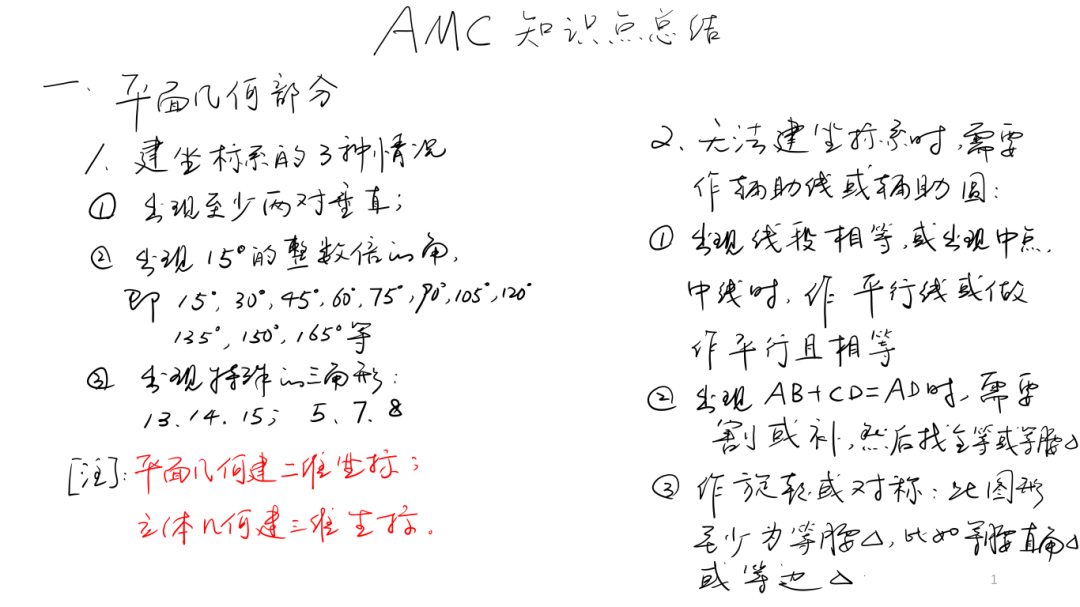 AMC 知识点总结
一、平面几何部分
1、建坐标系的3种情况
① 出现至少两对垂直;
② 出现15°的整数倍的角,
即 15°,30°,45°,60°,75°,90°,105°,120°
135°,150°,165°等
③ 出现特殊的三角形:
13.14.15; 5、7、8
[注]:平面几何建二维坐标;
立体几何建三维坐标。
2、无法建坐标系时,需要
作辅助线或辅助圆:
① 出现线段相等,或出现中点,
中线时,作 平行线或做
作平行且相等
② 出现 AB+CD=AD时,需要
割或补,然后找全等或等腰△
③ 作旋转或对称:此图形
至少为等腰△,比如等腰直角△
或等边△
1